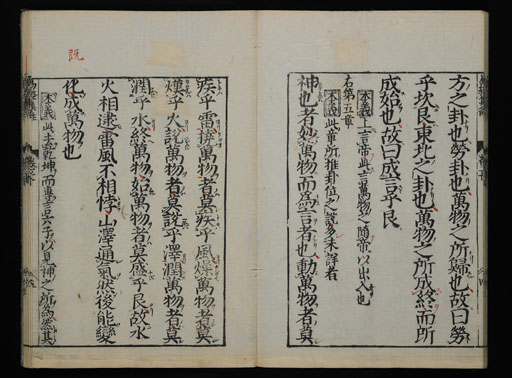 方之卦也勞卦也萬物之所歸也故曰勞
乎坎艮東北之卦也萬物之所成終而所
成始也故曰成言乎艮
本義上言帝此言萬物之隨帝以出入也
右第五章
本義此章所推卦位之說多未詳者
神也者妙萬物而為言者也動萬物者莫
疾乎雷撓萬物者莫疾乎風燥萬物者莫
熯乎火說萬物者莫說乎澤潤萬物者莫
潤乎水終萬物始萬物者莫盛乎艮故水
火相逮雷風不相悖山澤通氣然後能變
化成萬物也
本義此去乾坤而專言六子以見神之所為然其
既